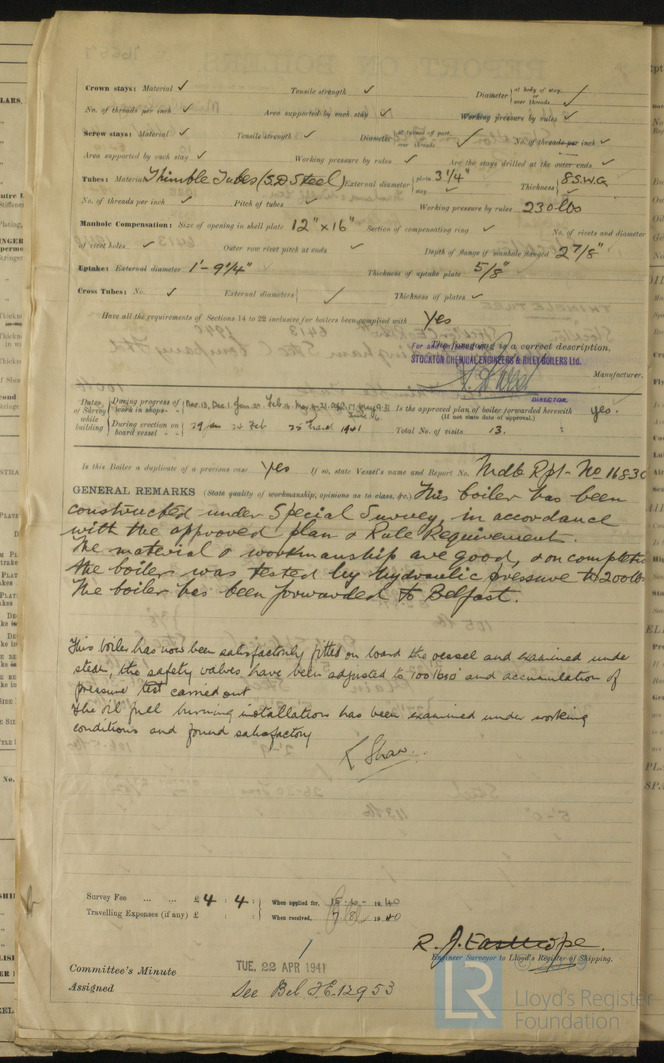 Crown stays: Material ✓ Tensile strength ✓ Diameter { at body of stay, or over threads. ✓
No. of threads per inch ✓ Area supported by each stay ✓ Working pressure by rules ✓
Screw stays: Material ✓ Tensile strength ✓ Diameter { at turned off part, or over threads. ✓ No. of threads per inch ✓
Area supported by each stay ✓ Working pressure by rules ✓ Are the stays drilled at the outer ends ✓
Tubes: Material Thimble Tubes (S.D Steel) External diameter { plain 3 1/4" stay ✓ Thickness { 8 S.W.G.
No. of threads per inch ✓ Pitch of tubes ✓ Working pressure by rules 230 lbs
Manhole Compensation: Size of opening in shell plate 12" x 16" Section of compensating ring ✓ No. of rivets and diameter
of rivet holes ✓ Outer row rivet pitch at ends ✓ Depth of flange if manhole flanged 2 7/8"
Uptake: External diameter 1'-9 1/4" Thickness of uptake plate 5/8"
Cross Tubes: No. ✓ External diameters { ✓ Thickness of plates ✓
Have all the requirements of Sections 14 to 22 inclusive for boilers been complied with Yes
The foregoing is a correct description,
For and on behalf of
STOCKTON CHEMICAL ENGINEERS & RILEY BOILERS Ltd.
Manufacturer.
DIRECTOR
Dates of Survey while building { During progress of work in shops - - During erection on board vessel - - - 1941
Is the approved plan of boiler forwarded herewith (If not state date of approval.) yes.
Total No. of visits 13.
Is this Boiler a duplicate of a previous case Yes If so, state Vessel's name and Report No. Mdb Rpt- No 16830
GENERAL REMARKS (State quality of workmanship, opinions as to class, &c.) This boiler has been
constructed under Special Survey, in accordance
with the approved plan & Rule Requirement.
The material & workmanship are good, & on completion
the boiler was tested by hydraulic pressure to 200 lb
The boiler has been forwarded to Belfast.
This boiler has now been satisfactorily fitted on board the vessel and examined under
steam, the safety valves have been adjusted to 100 lbs and accumulation of
pressure test carried out
The oil fuel burning installations has been examined under working
conditions and found satisfactory
R Shaw.
Survey Fee ... ... £4 : 4 : When applied for, 15-10-1940
Travelling Expenses (if any) £ : : When received, 1940
R. J. Easthope.
Engineer Surveyor to Lloyd's Register of Shipping.
Committee's Minute TUE. 22 APR 1941
Assigned See Bel. F.E. 12953
LR
Lloyd's Register
Foundation